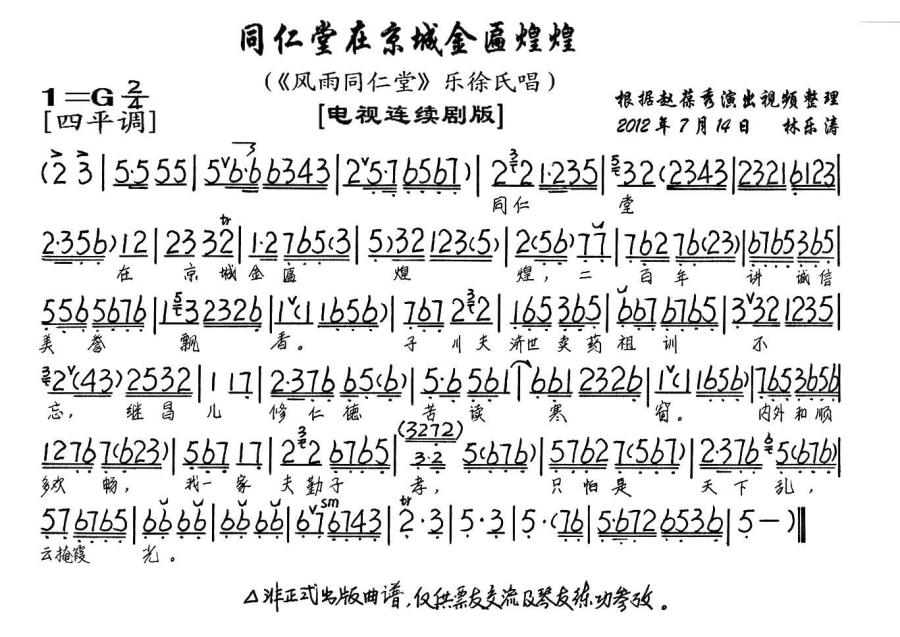 同仁堂在京城金匾煌煌
(《风雨同仁堂》乐徐氏唱)
1=G 2/4
[四平调]
[电视连续剧版]
根据赵葆秀演出视频整理
2012年7月14日 林乐涛
(2 3 | 5·5 5 5 | 5 6·6 6343 | 2 5·7 6567) | 2 2 1·235 | 32(2343 | 23216123 |
同仁 堂
2·356) 12 | 23 32 | 1·2 765(3 | 5)32 123(5) | 2(56) 77 | 762 76(23) | 6765365 |
在 京 城金匾 煌 煌,二 百年 讲 诚信
556 5676 | 1 3 2326 | 1(1 1656) | 767 2 2 | 165 365 | 667 6765 | 3 32 1235 |
美 誉 飘 香。 子川夫济世卖药祖训 不
2(43) 2532 | 1 17 | 2·376 65(6) | 5·6 561 | 661 2326 | 1(1 1656) | 7653656 |
忘, 继昌儿 修仁德 苦读 寒 窗。 内外和顺
12767(623) | 567 17 | 2 2 6765 | (3272) 3·2 5(676) | 57627(567) | 2·376 5(676) |
多欢 畅, 我一家夫勤子 孝, 只怕是 天下乱,
57 6765 | 66 66 | 66 66 | 67 6743 | 2·3 | 5·3 | 5·(76 | 5·672 6536 | 5 —) ‖
tr
sm
云掩霞 光。
△非正式出版曲谱,仅供票友交流及琴友练功参改。